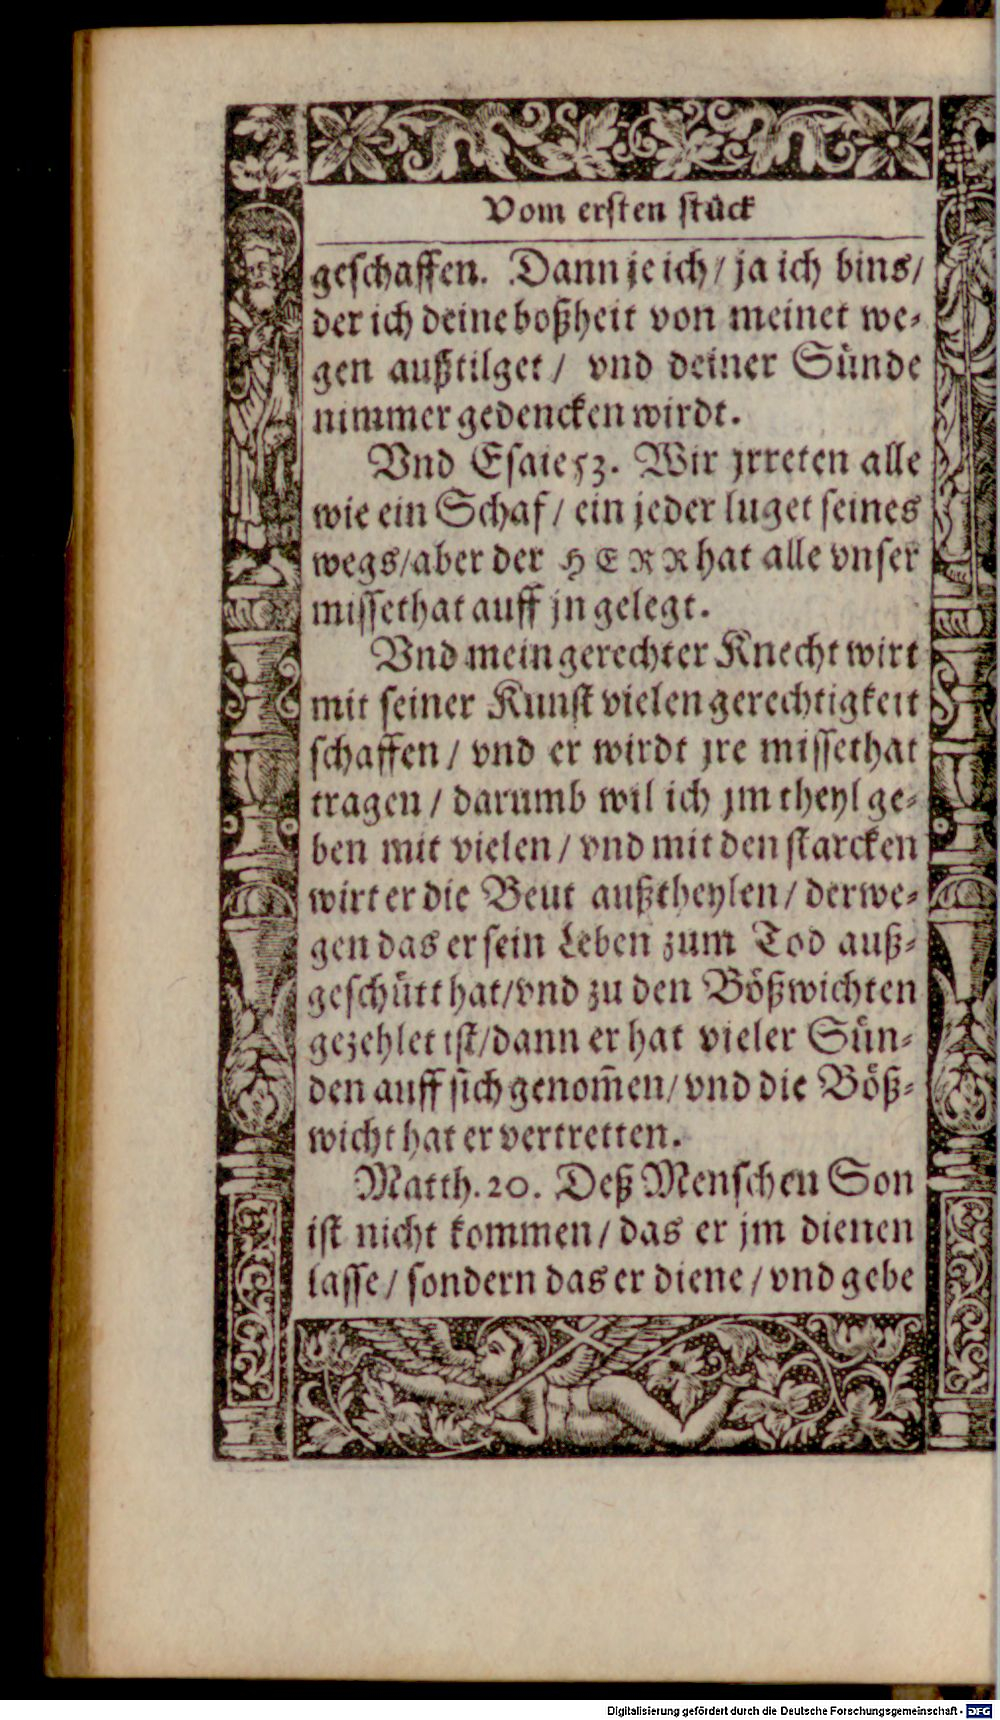 Vom ersten stück
geschaffen. Dann je ich / ja ich bins /
der ich deine boßheit von meinet we⸗
gen außtilget / vnd deiner Sünde
nimmer gedencken wirdt.
Vnd Esaie 53. Wir jrreten alle
wie ein Schaf / ein jeder luget seines
wegs / aber der HERR hat alle vnser
missethat auff jn gelegt.
Vnd mein gerechter Knecht wirt
mit seiner Kunst vielen gerechtigkeit
schaffen / vnd er wirdt jre missethat
tragen / darumb wil ich jm theyl ge⸗
ben mit vielen / vnd mit den starcken
wirt er die Beut außtheylen / derwe⸗
gen das er sein Leben zum Tod auß⸗
geschütt hat / vnd zu den Bößwichten
gezehlet ist / dann er hat vieler Sün⸗
den auff sich genom̃en / vnd die Böß⸗
wicht hat er vertretten.
Matth. 20. Deß Menschen Son
ist nicht kommen / das er jm dienen
lasse / sondern das er diene / vnd gebe
Digitalisierung gefördert durch die Deutsche Forschungsgemeinschaft - DFG